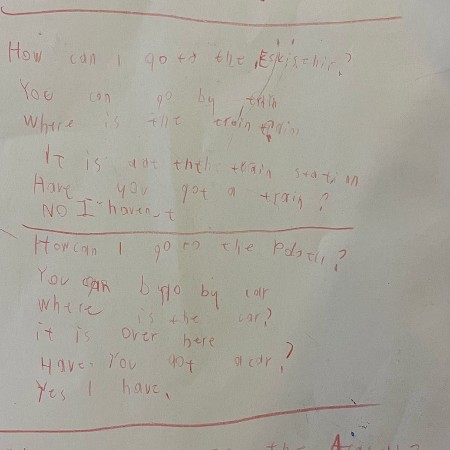 How can I go to the Eskisehir?
You can go by train
Where is the train
It is at the train station
Have you got a train?
NO I haven't
How can I go to the
You can go by car
Where is the car?
it is over here
Have you got a car?
Yes I have.
the